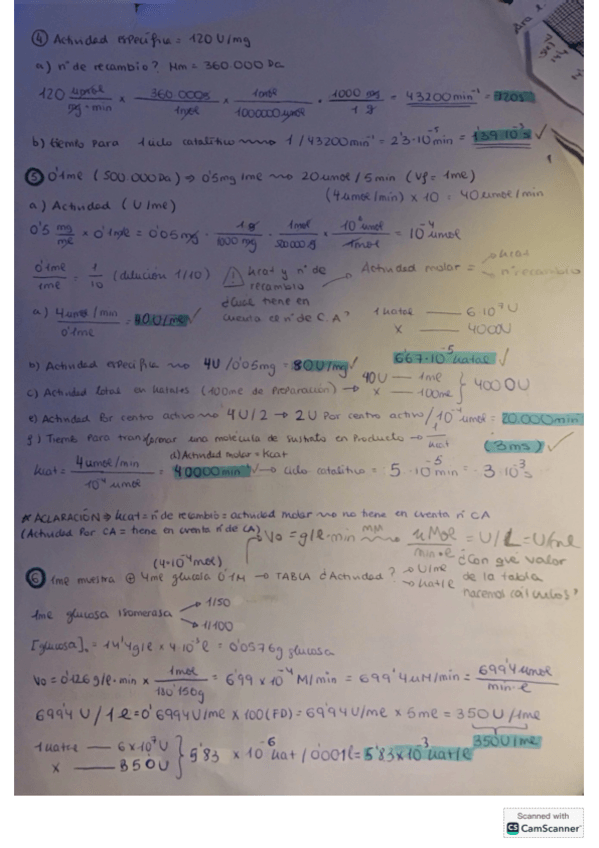 ④ Actividad específica = 120 U/mg
a) nº de recambio? Mm = 360.000 Da
120 μmol/mg·min × 360.000g/1mol × 1mol/1000000μmol × 1000 mg/1 g = 43200min⁻¹ = 720s
b) tiempo para 1 ciclo catalítico → 1/43200min⁻¹ = 2'3·10⁻⁵min = 1'39·10⁻³s ✓
⑤ 0'1ml (500.000Da) ⇒ 0'5mg/ml → 20μmol/5min (Vf = 1ml)
(4μmol/min) × 10 = 40μmol/min
a) Actividad (U/ml)
0'5 mg/ml × 0'1ml = 0'05mg · 1g/1000 mg · 1mol/500000g · 10⁶μmol/1mol = 10⁻⁴μmol
0'1ml/1ml = 1/10 (dilución 1/10) ⚠ kcat y nº de recambio Actividad molar = kcat nº recambio
¿Cuál tiene en cuenta el nº de C.A?
a) 4μmol/min / 0'1ml = 40U/ml ✓ 1 katal — 6·10⁷U
x — 4000U
6'67·10⁻⁵ katal ✓
b) Actividad específica → 4U/0'05mg = 80U/mg ✓
c) Actividad total en katales (100ml de preparación) → 40U — 1ml x — 100ml } 4000U
e) Actividad por centro activo → 4U/2 → 2U por centro activo/10⁻⁴μmol = 20.000min
f) Tiempo para transformar una molécula de sustrato en producto → 1/kcat (3ms) ✓
d) Actividad molar = kcat
kcat = 4μmol/min / 10⁻⁴μmol = 40000min⁻¹ ✓ → ciclo catalítico = 5·10⁻⁵min = 3·10⁻³s
* ACLARACIÓN ⇒ kcat = nº de recambio = actividad molar → no tiene en cuenta nº CA
(Actividad por CA = tiene en cuenta nº de CA)
Vo = g/l·min MM μMol/min·l = U/L = U/ml
(4·10⁻⁴mol)
⑥ 1ml muestra ⊕ 4ml glucosa 0'1M → TABLA ¿Actividad? U/ml kat/l
¿Con que valor de la tabla hacemos cálculos?
1ml glucosa isomerasa 1/50 1/100
[glucosa]₀ = 14'4g/l × 4·10⁻³l = 0'0576g glucosa
Vo = 0'126g/l·min × 1mol/180'156g = 6'99 × 10⁻⁴M/min = 699'4μM/min = 699'4μmol/min·l
699'4 U/1l = 0'6994U/ml × 100(FD) = 69'94U/ml × 5ml = 350U/1ml
350U/ml
1 katal — 6×10⁷U
x — 350U } 5'83 × 10⁻⁶kat/0'001l = 5'83×10⁻³kat/l
Scanned with
CS CamScanner